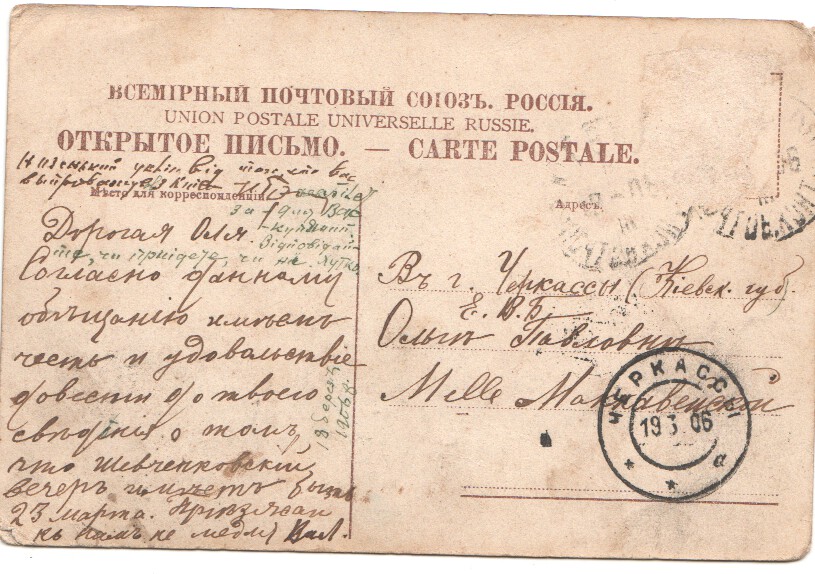 ВСЕМІРНЫЙ ПОЧТОВЫЙ СОЮЗЪ. РОССІЯ.
UNION POSTALE UNIVERSELLE RUSSIE.
ОТКРЫТОЕ ПИСЬМО. — CARTE POSTALE.
Низенький уклін від того, хто вас
Мѣсто для корреспонденціи
Адресъ.
за для Вас
Відповідайте
те, чи приідете, чи не
Дорогая Оля
Согласно данному
обѣщанію имѣемъ
честь и удовольствіе
довести до твоего
свѣдѣнія о томъ,
что Шевченковскій
вечеръ имѣетъ быть
23 марта. Пріѣзжай
къ намъ не медля Вал.
18 берез.
1906 р.
Въ г. Черкассы (Кіевск. губ.)
Е. В. Б.
Ольгѣ Павловнѣ
Melle
ЧЕРКАССЫ
19 3 06
а